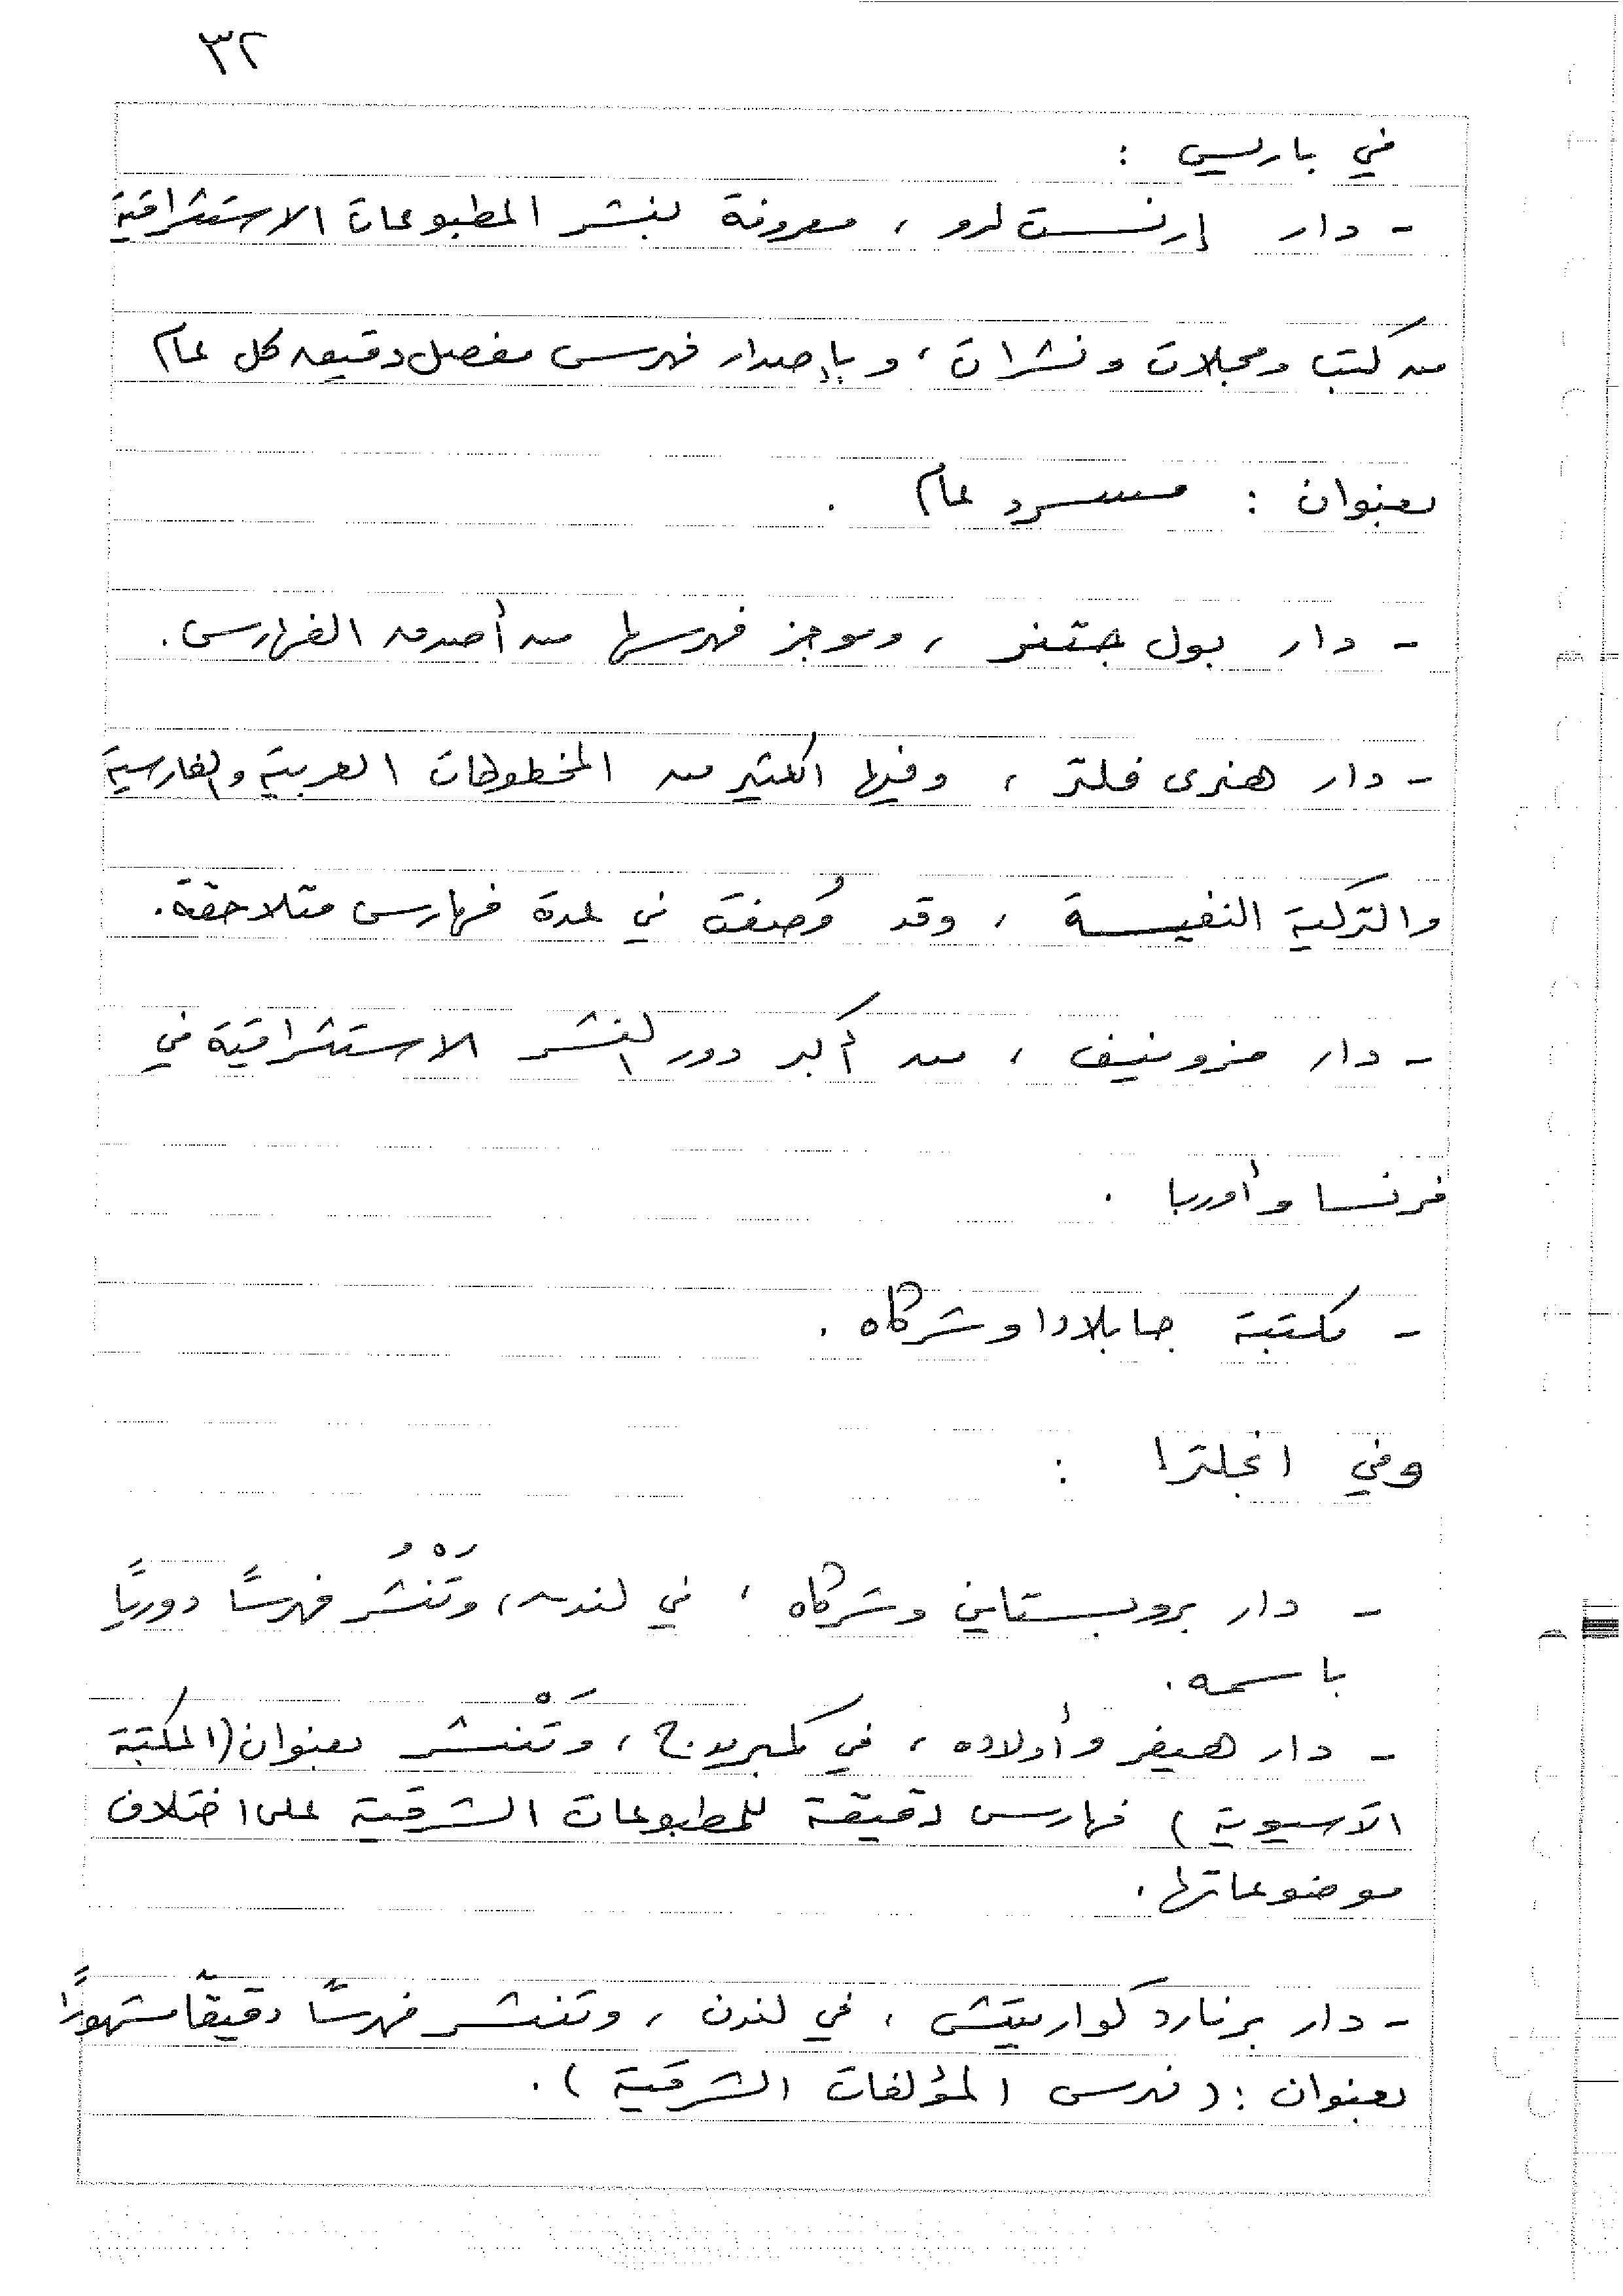 ٣٢
في باريس :
- دار إرنست لرو ، معروفة بنشر المطبوعات الاستشراقية
من كتب ومجلات ونشرات ، وبإصدار فهرس مفصل دقيق كل عام
بعنوان : مسرد عام .
- دار بول جتنر ، وموجز فهرسها من أصدق الفهارس .
- دار هنري فلتر ، وفيها الكثير من المخطوطات العربية والفارسية
والتركية النفيسة ، وقد وُصفت في عدة فهارس متلاحقة .
- دار مزونيف ، من أكبر دور النشر الاستشراقية في
فرنسا وأوربا .
- مكتبة جابلادا وشركاه .
وفي انجلترا :
- دار بروبستاين وشركاه ، في لندن ، وتَنْشُر فهرسًا دوريًا
باسمه .
- دار هيفر وأولاده ، في كمبريدج ، وتَنْشر بعنوان (المكتبة
الآسيوية) فهارس دقيقة للمطبوعات الشرقية على اختلاف
موضوعاتها .
- دار برنارد كواريتش ، في لندن ، وتنشر فهرسًا دقيقًا مشهورًا
بعنوان : (فهرس المؤلفات الشرقية) .